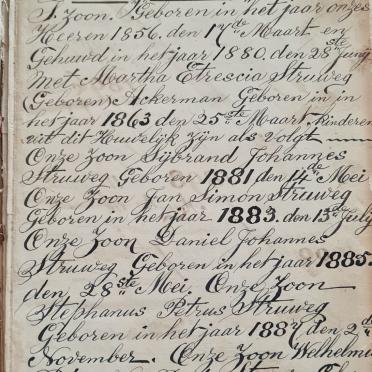 J. Zoon. Geboren in het jaar onzes
Heeren 1856. den 17de Maart en
Gehuwd in het jaar 1880. den 28ste Junij
Met Martha Etrescia Struweg
(Geboren) Ackerman Geboren in in
het jaar 1863 den 25ste Maart. Kinderen
uit dit Heuwelijk zijn als Volgt
Onze Zoon Sijbrand Johannes
Struweg Geboren 1881 den 14de Mei
Onze Zoon Jan Simon Struweg
Geboren in het jaar 1883. den 13de Julij
Onze Zoon Daniel Johannes
Struweg Geboren in het jaar 1885.
den 28ste Mei. Onze Zoon
Stephanus Petrus Struweg
Geboren in het jaar 1887 den 2de
November. Onze Zoon Welhelmus